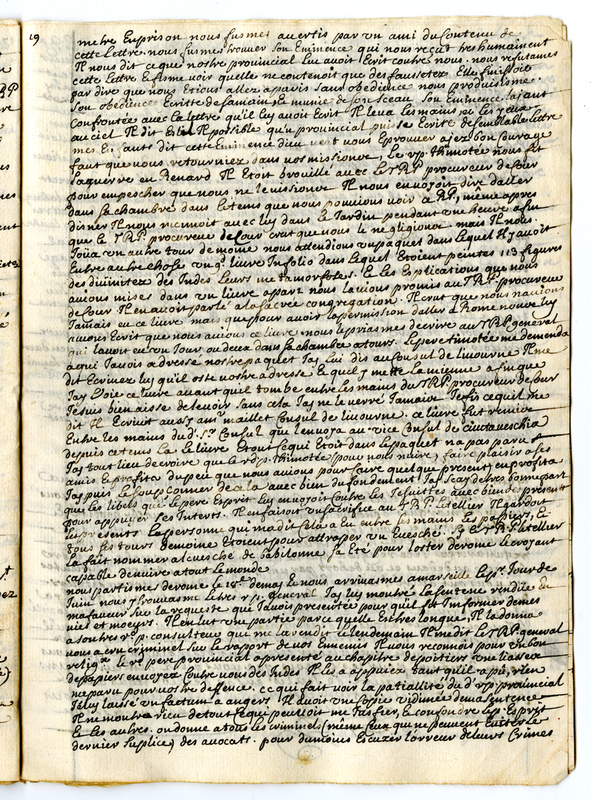 19
metre En prison nous fusmes avertis par un ami du Contenu de
cette Lettre. nous fusmes trouver Son Eminence qui nous reçut tres humainent
Il nous dit ce que nostre provincial luy avoit Ecrit contre nous. nous refutames
cette Lettre & fismes voir quelle ne contenoit que des faussetez. Elle finissoit
par dire que nous Etions allez a paris sans obedience nous produisimes
Son obedience Ecritte de sa main, & munie de son sceau Son Eminence laiant
Confrontée avec la lettre qu'il luy avoit Ecrit Il leva les mains, et les yeux
au ciel Il dit Est Il possible qu'un provincial puisse Ecrire de semblable lettre
mes Enfants dit cette Eminence dieu veut vous Eprouver ajez bon Courage
faut que vous retourniez dans vos missions, le rp thimotée nous fit
la guerre en Renard Il Etoit brouillé avec le TRP procureur de
pour empescher que nous ne le vissions Il nous envoyoit dire daller
dans sa chambre dans le tems que nous pouvions voir Le RP, meme apres
disner Il nous retenoit avec luy dans le Jardin pendant une heure afin
que le TRP procureur de crut que nous le negligions mais Il nous
Joua un autre tour de moine nous attendions un paquet dans lequel Il y avoit
Entre autre chose un gd livre Infolio dans lequel Etoient peintes 113 figures
des divinitez des Indes Leurs metamorfoses. & les Explications que nous
avions mises dans un livre apart nous lavions promis au TRP procureur
Il en avoit parlé a la sacrée congregation. Il crut que nous navions
Jamais eu ce livre mais que pour avoir la permission daller a Rome nous luy
avions Ecrit que nous avions ce livre, nous le priasmes decrire au TRP general
qui lavoit eu un Jour ou deux dans sa chambre a tours. Le pere timotée me demanda
a qui Javois adressé nostre paquet Jay lui dis au Consul de livourne Il me
dit Ecrivez luy qu'il oste vostre adresse & quel y mette la mienne afin que
Jay Loie ce livre avant quil tombe entre les mains du TRP procureur
Je suis bien aise de levoir sans cela Jay ne le verré Jamais Je fis ce quil me
dit Il Ecrivit aussy a mr maillet Consul de livourne. ce livre fut remise
Entre les mains du d. Sr Consul qui lenvoya au vice Consul de Civitaveschia
depuis ce tems La le livre & tout ce qui Etoit dans le paquet na pas paru &
Jay tout lieu de croire que le rdp. thimotée (pour nous nuire) faire plaisir a ses
amis & profita du peu que nous avions pour faire quelque present, en profita
Jay puis le soupçonner de cela avec bien du fondement Jay scay de tres bonne part
que les libels que le pere Esprit luy envoyoit Contre les Jesuittes avec bien des presents
pour appuyer ses Interts. Il en faisoit un sacrifice au TRP. Letellier Il gardoit
les presents La personne qui ma dit Cela a Eu entre ses mains les papiers, &
tous ses tours de moine Etoient pour attraper un Evesché. & le TRP. letellier
la fait nommer a levesché de babilonne sa Eté pour loster de rome le voyant
capable de nuire a tout le monde
nous partismes de rome le 18e de may & nous arrivasmes a marseille le pr Jour de
Juin nous y trouvasme le tres r.p. general Jay luy montré la sentence rendue En
ma faveur sur la requeste que Javois presentée pour quil fit Informer de mes
vies et moeurs. Il en lut une partie parce quelle Est tres longue, Il la donna
a son tres rdp. consulteur que me la rendit le lendemain Il me dit le TRP. general
vous a cru criminel sur le raport de vos Ennemis Il vous reconnoit pour un bon
religx. le rd pere provincial a presenté au chapitre de poitiers une liasse
de papiers envoyez Contre vous des Indes Il les a appuiez tant qu'il a pu, rien
ne paru pour vostre deffence. ce qui fait voir la partiallité du d. rp. provincial
Je luy laissé un factum a angers Il avoit une Copie vidimée de ma sentence
Il ne montra rien de tout ce qui pouvoit me Justifier, & confondre le p. Esprit
& les autres. on donne a tous les criminels (même ceux qui ne peuvent Eviter le
dernier suplice) des avocats. pour du moins Escuzer lorreur de leurs Crimes